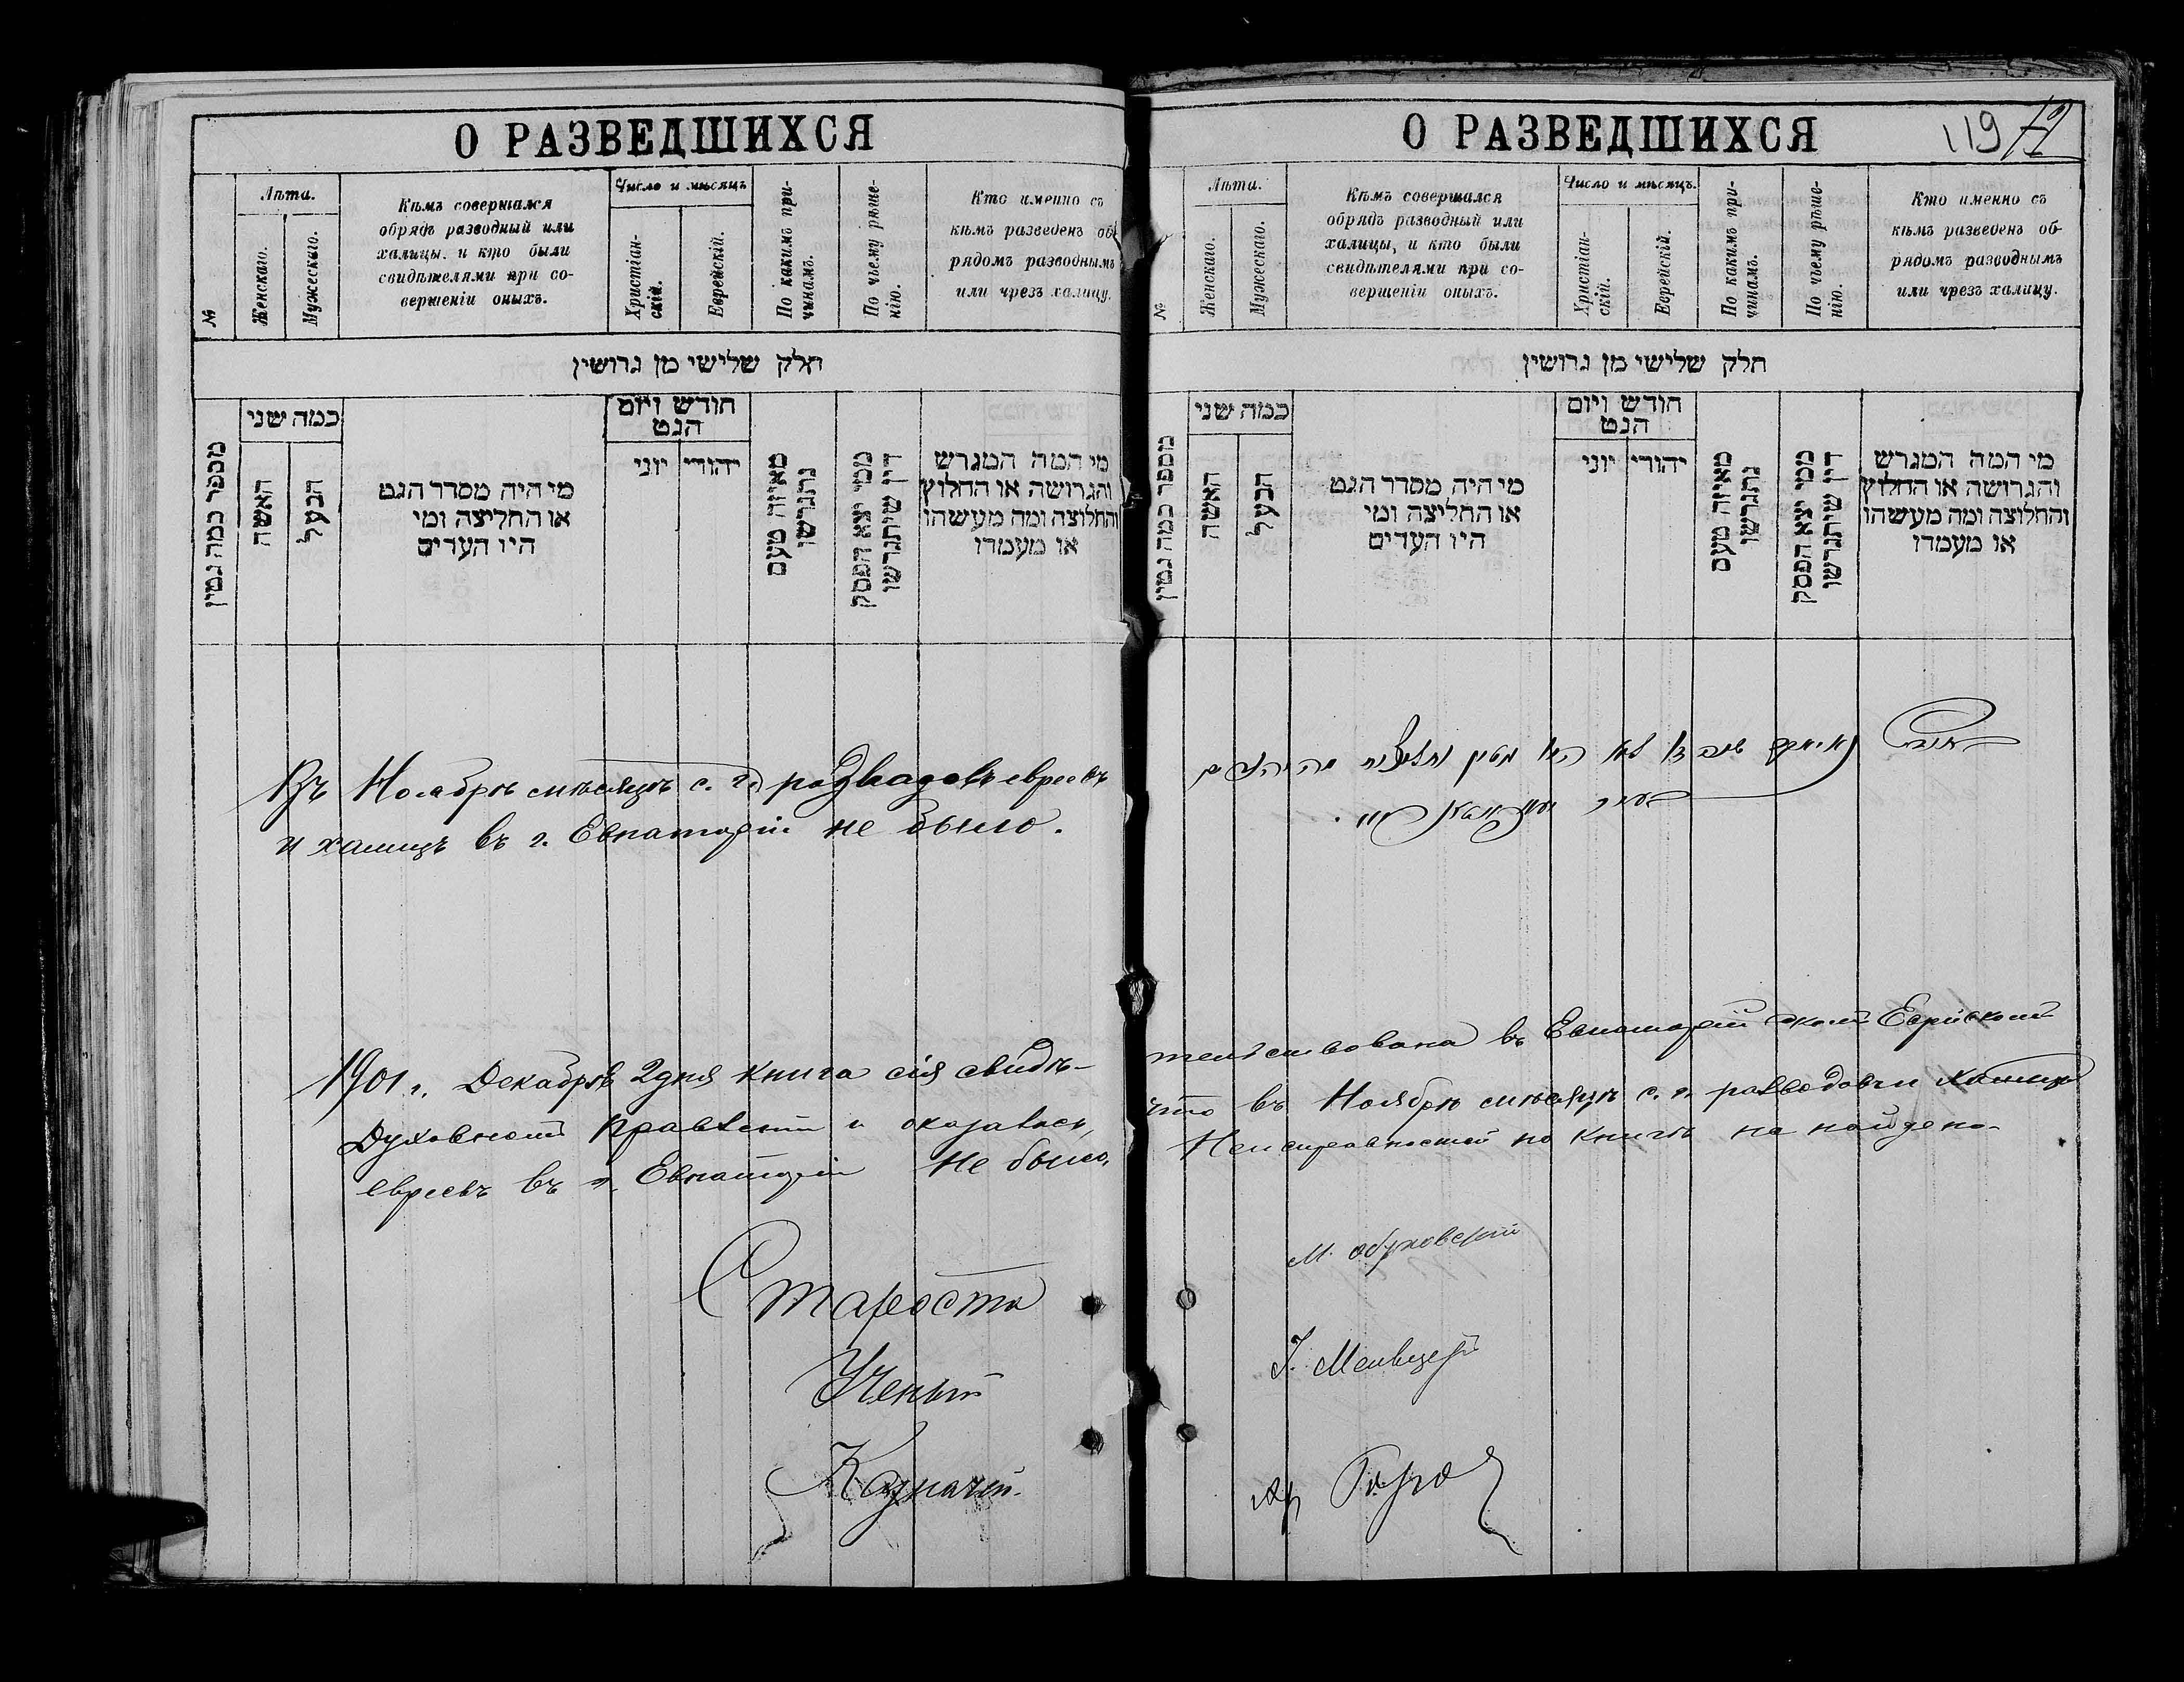 О РАЗВЕДШИХСЯ
№
Лѣта.
Женскаго.
Мужескаго.
Кѣмъ совершался
обрядъ разводный или
халицы, и кто были
свидѣтелями при со-
вершеніи оныхъ.
Число и мѣсяцъ
Христіан-
скій.
Еврейскій.
По какимъ при-
чинамъ.
По чьему рѣше-
нію.
Кто именно съ
кѣмъ разведенъ об-
рядомъ разводнымъ
или чрезъ халицу.
חלק שלישי מן גרושין
מספר כמה גטין
כמה שני
האשה
הבעל
מי היה מסדר הגט
או החליצה ומי
היו העדים
חודש ויום
הגט
יוני
יהודי
מאיזה טעם
נתגרשו
ממי יצא הפסק
דין שיתגרשו
מי המה המגרש
והגרושה או החלוץ
והחלוצה ומה מעשהו
או מעמדו
Въ Ноябрѣ мѣсяцѣ с. г. разводовъ евреевъ
и халицъ въ г. Евпаторіи не было.
1901 г. Декабря 2 дня книга сія свидѣ-
Духовномъ Правленіи и оказалось,
евреевъ въ г. Евпаторіи не было.
Староста
Ученый
Казначей.
О РАЗВЕДШИХСЯ
119
№
Лѣта.
Женскаго.
Мужескаго.
Кѣмъ совершался
обрядъ разводный или
халицы, и кто были
свидѣтелями при со-
вершеніи оныхъ.
Число и мѣсяцъ.
Христіан-
скій.
Еврейскій.
По какимъ при-
чинамъ.
По чьему рѣше-
нію.
Кто именно съ
кѣмъ разведенъ об-
рядомъ разводнымъ
или чрезъ халицу.
חלק שלישי מן גרושין
מספר כמה גטין
כמה שני
האשה
הבעל
מי היה מסדר הגט
או החליצה ומי
היו העדים
חודש ויום
הגט
יוני
יהודי
מאיזה טעם
נתגרשו
ממי יצא הפסק
דין שיתגרשו
מי המה המגרש
והגרושה או החלוץ
והחלוצה ומה מעשהו
או מעמדו
тельствована въ Евпаторійскомъ Еврейскомъ
что въ Ноябрѣ мѣсяцѣ с. г. разводовъ и халицъ
Неисправностей по книгѣ не найдено.
М.